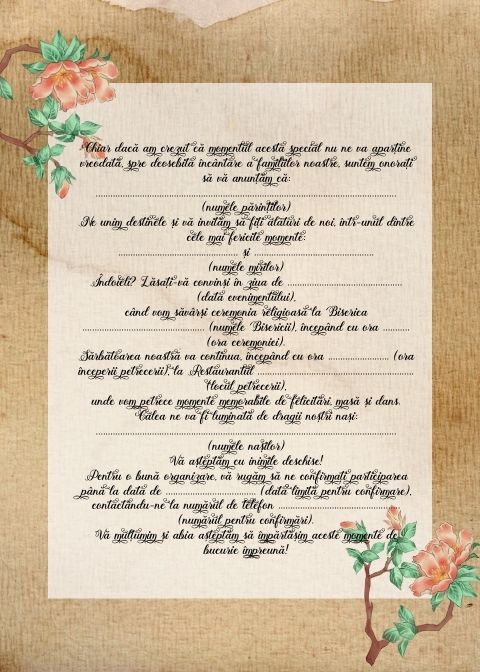 Chiar dacă am crezut că momentul acesta special nu ne va aparține
vreodată, spre deosebita încântare a familiilor noastre, suntem onorați
să vă anunțăm că:
........................................................................................
(numele părinților)
Ne unim destinele și vă invităm să fiți alături de noi, într-unul dintre
cele mai fericite momente:
........................................ și ........................................
(numele mirilor)
Îndoieli? Lăsați-vă convinși în ziua de ..................................
(data evenimentului),
când vom săvârși ceremonia religioasă la Biserica
.................................... (numele Bisericii), începând cu ora ................
(ora ceremoniei).
Sărbătoarea noastră va continua, începând cu ora .................. (ora
începerii petrecerii), la Restaurantul ..............................................
(locul petrecerii),
unde vom petrece momente memorabile de felicitări, masă și dans.
Calea ne va fi luminată de dragii noștri nași:
........................................................................................
(numele nașilor)
Vă așteptăm cu inimile deschise!
Pentru o bună organizare, vă rugăm să ne confirmați participarea
până la data de ............................ (data limită pentru confirmare),
contactându-ne la numărul de telefon ..................................
(numărul pentru confirmări).
Vă mulțumim și abia așteptăm să împărtășim aceste momente de
bucurie împreună!